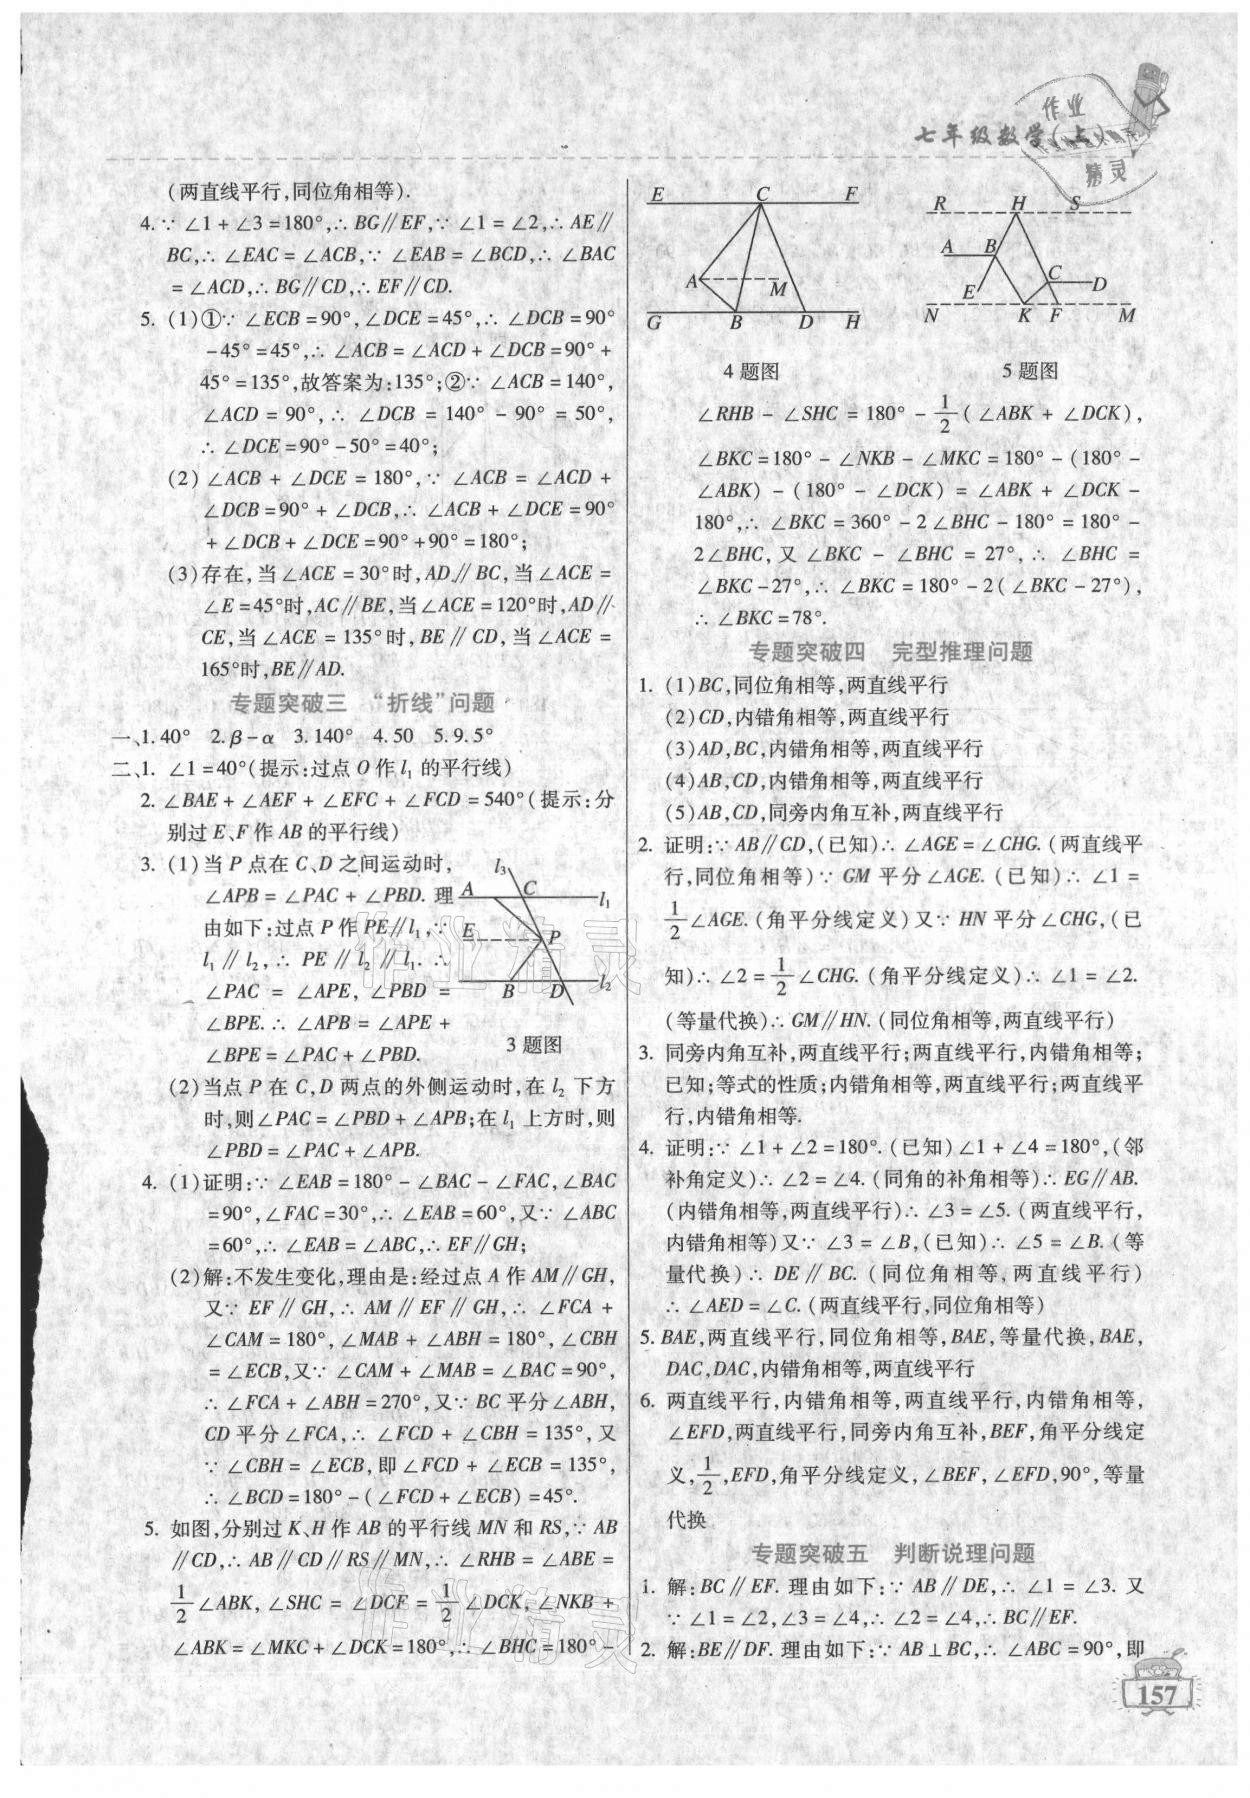 七年级数学(上)
作业
精灵
(两直线平行,同位角相等).
4.∵ ∠1+∠3=180°,∴ BG∥EF,∵ ∠1=∠2,∴AE∥
BC,∴ ∠EAC=∠ACB,∵ ∠EAB=∠BCD,∴ ∠BAC
=∠ACD,∴ BG∥CD,∴EF∥CD.
5. (1)①∵ ∠ECB=90°,∠DCE=45°,∴ ∠DCB=90°
-45°=45°,∴ ∠ACB=∠ACD+∠DCB=90°+
45°=135°,故答案为:135°;②∵ ∠ACB=140°,
∠ACD=90°,∴ ∠DCB=140°-90°=50°,
∴ ∠DCE=90°-50°=40°;
(2) ∠ACB+∠DCE=180°,∵ ∠ACB=∠ACD+
∠DCB=90°+∠DCB,∴ ∠ACB+∠DCE=90°
+∠DCB+∠DCE=90°+90°=180°;
(3)存在,当∠ACE=30°时,AD∥BC,当∠ACE=
∠E=45°时,AC∥BE,当∠ACE=120°时,AD∥
CE,当∠ACE=135°时,BE∥CD,当∠ACE=
165°时,BE∥AD.
专题突破三 “折线”问题
一、1.40° 2.β-α 3.140° 4.50 5.9.5°
二、1. ∠1=40°(提示:过点O作l₁的平行线)
2. ∠BAE+∠AEF+∠EFC+∠FCD=540°(提示:分
别过E、F作AB的平行线)
3. (1)当P点在C、D之间运动时,
∠APB=∠PAC+∠PBD. 理
由如下:过点P作PE∥l₁,∵
l₁∥l₂,∴ PE∥l₂∥l₁. ∴
∠PAC=∠APE, ∠PBD=
∠BPE.∴ ∠APB=∠APE+
∠BPE=∠PAC+∠PBD.
l₃
A C l₁
E P
B D l₂
3题图
(2)当点P在C、D两点的外侧运动时,在l₂下方
时,则∠PAC=∠PBD+∠APB;在l₁上方时,则
∠PBD=∠PAC+∠APB.
4. (1)证明:∵ ∠EAB=180°-∠BAC-∠FAC,∠BAC
=90°,∠FAC=30°,∴ ∠EAB=60°,又∵ ∠ABC
=60°,∴ ∠EAB=∠ABC,∴ EF∥GH;
(2)解:不发生变化,理由是:经过点A作AM∥GH,
又∵ EF∥GH,∴ AM∥EF∥GH,∴ ∠FCA+
∠CAM=180°,∠MAB+∠ABH=180°,∠CBH
=∠ECB,又∵ ∠CAM+∠MAB=∠BAC=90°,
∴ ∠FCA+∠ABH=270°,又∵ BC平分∠ABH,
CD平分∠FCA,∴ ∠FCD+∠CBH=135°,又
∵ ∠CBH=∠ECB,即∠FCD+∠ECB=135°,
∴ ∠BCD=180°-(∠FCD+∠ECB)=45°.
5. 如图,分别过K、H作AB的平行线MN和RS,∵ AB
∥CD,∴ AB∥CD∥RS∥MN,∴ ∠RHB=∠ABE=
1/2∠ABK, ∠SHC=∠DCF=1/2∠DCK, ∠NKB+
∠ABK=∠MKC+∠DCK=180°,∴ ∠BHC=180°-
E C F
A M
G B D H
4题图
R H S
A B
C D
E
N K F M
5题图
∠RHB-∠SHC=180°-1/2(∠ABK+∠DCK),
∠BKC=180°-∠NKB-∠MKC=180°-(180°-
∠ABK)-(180°-∠DCK)=∠ABK+∠DCK-
180°,∴ ∠BKC=360°-2∠BHC-180°=180°-
2∠BHC,又∠BKC-∠BHC=27°,∴ ∠BHC=
∠BKC-27°,∴ ∠BKC=180°-2(∠BKC-27°),
∴ ∠BKC=78°.
专题突破四 完型推理问题
1. (1)BC,同位角相等,两直线平行
(2)CD,内错角相等,两直线平行
(3)AD,BC,内错角相等,两直线平行
(4)AB,CD,内错角相等,两直线平行
(5)AB,CD,同旁内角互补,两直线平行
2. 证明:∵ AB∥CD,(已知)∴ ∠AGE=∠CHG. (两直线平
行,同位角相等)∵ GM平分∠AGE. (已知)∴ ∠1=
1/2∠AGE. (角平分线定义)又∵ HN平分∠CHG,(已
知)∴ ∠2=1/2∠CHG. (角平分线定义)∴ ∠1=∠2.
(等量代换)∴ GM∥HN. (同位角相等,两直线平行)
3. 同旁内角互补,两直线平行;两直线平行,内错角相等;
已知;等式的性质;内错角相等,两直线平行;两直线平
行,内错角相等.
4. 证明:∵ ∠1+∠2=180°. (已知)∠1+∠4=180°,(邻
补角定义)∴ ∠2=∠4. (同角的补角相等)∴ EG∥AB.
(内错角相等,两直线平行)∴ ∠3=∠5. (两直线平行,
内错角相等)又∵ ∠3=∠B,(已知)∴ ∠5=∠B. (等
量代换)∴ DE∥BC. (同位角相等,两直线平行)
∴ ∠AED=∠C. (两直线平行,同位角相等)
5. BAE,两直线平行,同位角相等,BAE,等量代换,BAE,
DAC,DAC,内错角相等,两直线平行
6. 两直线平行,内错角相等,两直线平行,内错角相等,
∠EFD,两直线平行,同旁内角互补,BEF,角平分线定
义,1/2,EFD,角平分线定义,∠BEF,∠EFD,90°,等量
代换
专题突破五 判断说理问题
1. 解:BC∥EF. 理由如下:∵ AB∥DE,∴ ∠1=∠3. 又
∵ ∠1=∠2,∠3=∠4,∴ ∠2=∠4,∴ BC∥EF.
2. 解:BE∥DF. 理由如下:∵ AB⊥BC,∴ ∠ABC=90°,即
157
作业精灵
作业精灵